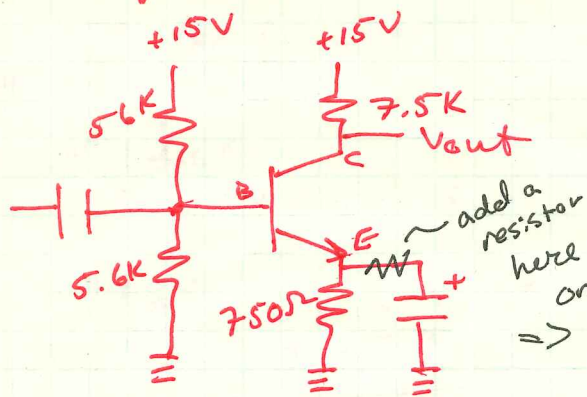 +15V +15V
56K
7.5K
Vout
C
B
E
add a
resistor
here
or
=>
5.6K
750Ω
+